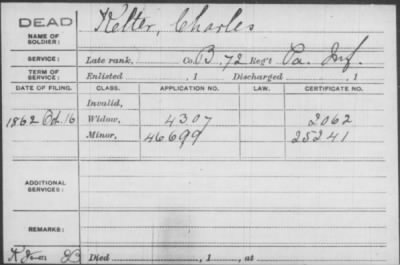 DEAD
NAME OF SOLDIER: Kelter, Charles
SERVICE: Late rank, Co. B, 72 Reg't Pa. Inf.
TERM OF SERVICE: Enlisted , 1 Discharged , 1
DATE OF FILING. CLASS. APPLICATION NO. LAW. CERTIFICATE NO.
Invalid,
1862 Oct. 16 Widow, 4307 2062
Minor, 46699 25241
ADDITIONAL SERVICES:
REMARKS:
Died , 1 , at